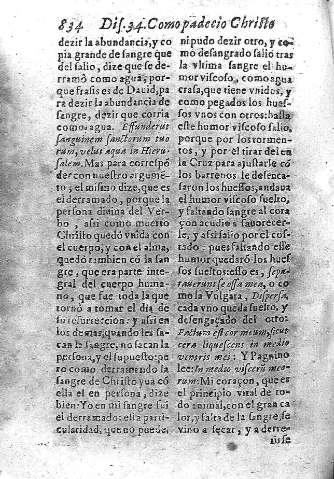 834 Dis.34.Como padecio Christo
dezir la abundancia, y co
pia grande de sangre que
del salio, dize que se de-
rramó como agua, porq̃
que frasis es de Dauid, pa
ra dezir la abundancia de
sangre, dezir que corria
como agua. Effunderūt
sanguinem sanctorum tuo
rum, velut aqua in Hieru
salem. Mas para correspõ
der con nuestro argumẽ-
to, el mismo dize, que es
el derramado, porque la
persona diuina del Ver-
bo, assi como muerto
Christo quedó vnida con
el cuerpo, y con el alma,
quedó tambien có la san
gre, que era parte inte-
gral del cuerpo huma-
no, que fue toda la que
tornò a tomar el dia de
su resurreccion: y assi en
los demas, quando les sa-
can la sangre, no sacan la
persona, y el supuesto: pe
ro como derramando la
sangre de Christo yua cõ
ella el en persona, dize
bien: Yo en mi sangre fui
el derramado: ella parti-
cularidad, que no puede,
ni pudo dezir otro, y co
mo desangrado salio tras
la vltima sangre el hu-
mor viscoso, como agua
crasa, que tiene vnidos, y
como pegados los hues-
sos vnos con otros: halla
este humor viscoso salio,
porque por los tormen-
tos, y por el tirar de en
la Cruz para ajustarle có
los barrenos le desenca-
saron los huessos, andaua
el humor viscoso suelto,
y faltando sangre al cora
çon acudio a fauorecer-
le, y assi salio por el cos-
tado: pues faltando este
humor quedarõ los hues
sos sueltos: esso es, sepa-
rauerunt se ossa mea, o co
mo la Vulgata, Dispersa,
cada vno quedó suelto, y
desengaçado del otro:
Factum est cor meum, sicut
cera liquescens in medio
ventris mei: Y Pagnino
lee: In medio viscerũ meo-
rum: Mi coraçon, que es
el principio vital de to-
do animal, con el gran ca
lor, y falta de la sangre se
vino a secar, y a derre-
tirse